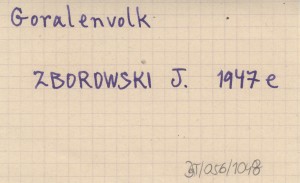 Goralenvolk
ZBOROWSKI J. 1947 e
JT/056/1048